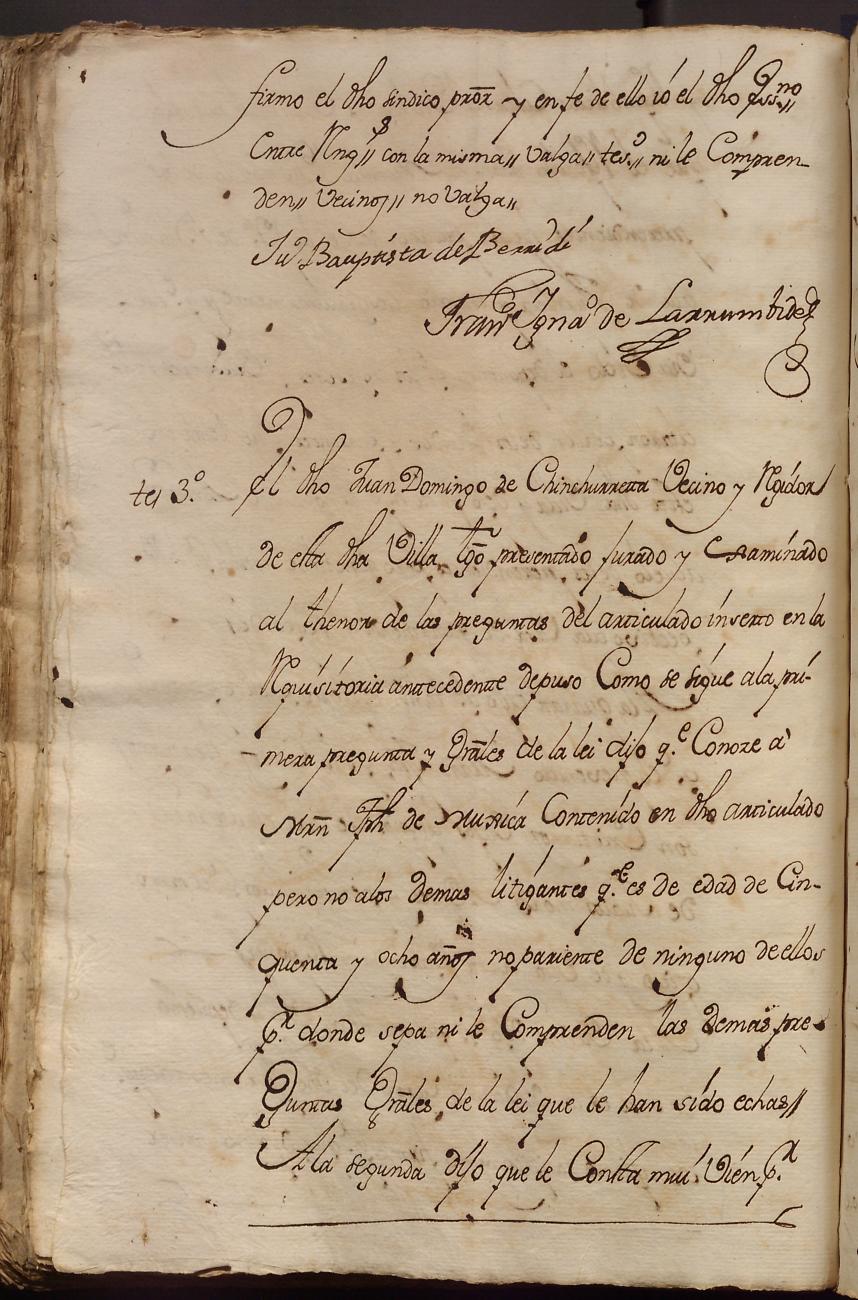 firmo el dho sindico prõr y en fe de ello ió el dho Essno
Entre Rng // con la misma // valga // tes.o // ni le Compren-
den // Vecinos // no valga //
Ju Bauptista de Berridi
Franco Igna.o de Larrumbide
tes 3.o
El dho Juan Domingo de Chinchurreta Vecino y Rgidor
de esta dha Villa tgõ presentado jurado y Examinado
al thenor de las preguntas del articulado inserto en la
Rquisitoria antecedente depuso Como se sigue a la pri-
mera pregunta y Grãles de la lei dijo q.e Conoze à
Mrñ Jph de Muxica Contenido en dho articulado
pero no a los demas litigantes q.e es de edad de Cin-
quenta y ocho años no pariente de ninguno de ellos
p.a donde sepa ni le Comprenden las demas pre-
Guntas Grãles de la lei que le han sido echas //
A la segunda dijo que le Consta mui vien p.r